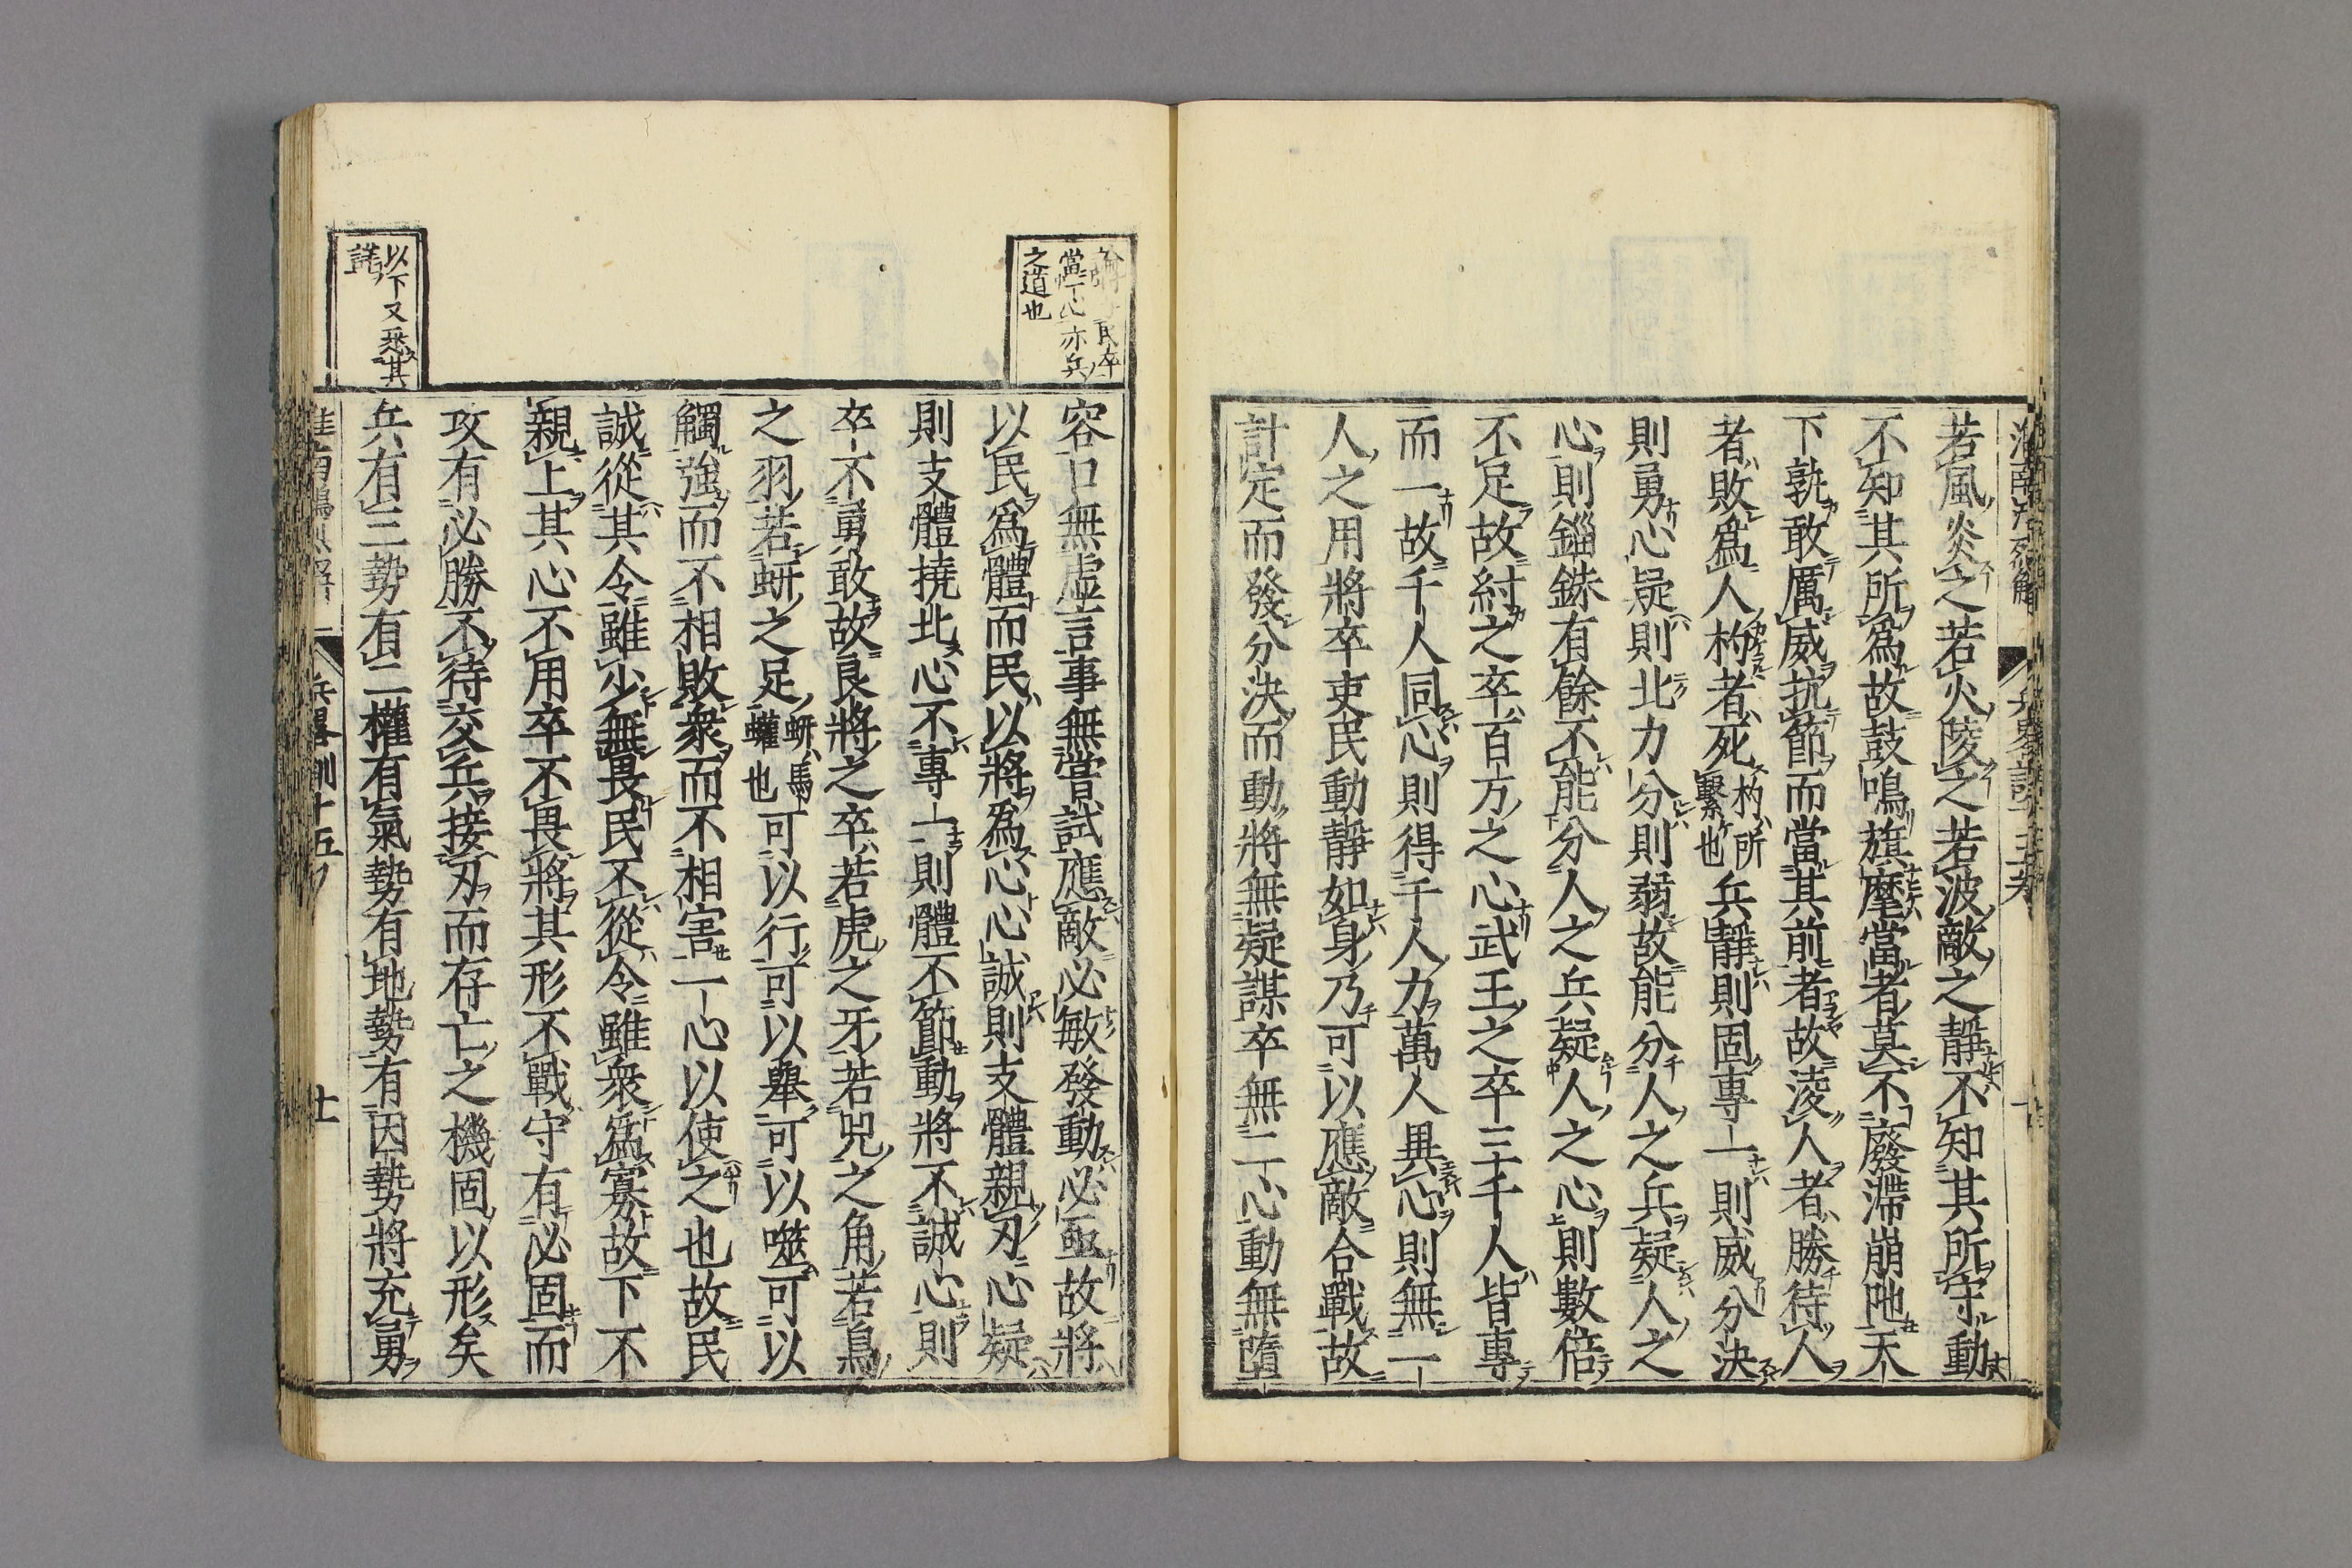 若風炎之若火陵之若波敵之靜不知其所守動
不知其所爲故鼓鳴旗麾當者莫不廢滯崩阤天
下孰敢厲威抗節而當其前者故淩人者勝待人
者敗爲人杓者死杓所繫也兵靜則固專一則威分決
則勇心疑則北力分則弱故能分人之兵疑人之
心則錙銖有餘不能分人之兵疑人之心則數倍
不足故紂之卒百万之心武王之卒三千人皆專
而一故千人同心則得千人力萬人異心則無一
人之用將卒吏民動靜如身乃可以應敵合戰故
計定而發分決而動將無疑謀卒無二心動無墮
民卒
當心亦兵
之道也
容口無虛言事無嘗試應敵必敏發動必亟故將
以民爲體而民以將爲心心誠則支體親刃心疑
則支體撓北心不專一則體不節動將不誠心則
卒不勇敢故良將之卒若虎之牙若兕之角若鳥
之羽若蚈之足蚈馬蠸也可以行可以舉可以噬可以
觸強而不相敗衆而不相害一心以使之也故民
誠從其令雖少無畏民不從令雖衆爲寡故下不
親上其心不用卒不畏將其形不戰守有必固而
攻有必勝不待交兵接刃而存亡之機固以形矣
以下又悉其
諸
兵有三勢有二權有氣勢有地勢有因勢將充勇
兵畧訓十五